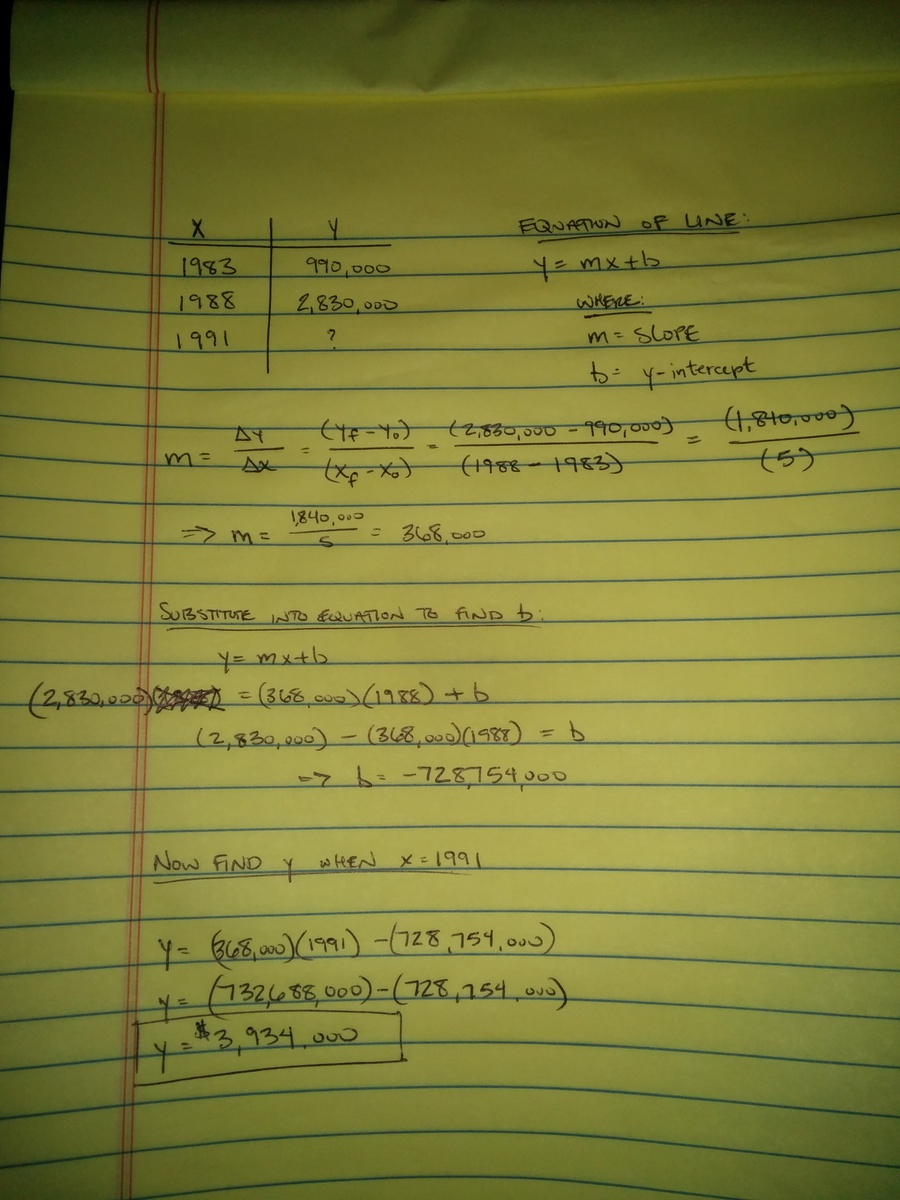 X Y
1983 990,000
1988 2,830,000
1991 ?
EQUATION OF LINE:
y = mx + b
WHERE:
m = SLOPE
b = y-intercept
m = ΔY/ΔX = (Yf - Y₀)/(Xf - X₀) = (2,830,000 - 990,000)/(1988 - 1983) = (1,840,000)/(5)
=> m = 1,840,000/5 = 368,000
SUBSTITUTE INTO EQUATION TO FIND b:
y = mx + b
(2,830,000) = (368,000)(1988) + b
(2,830,000) - (368,000)(1988) = b
=> b = -728,754,000
NOW FIND y WHEN x = 1991
y = (368,000)(1991) - (728,754,000)
y = (732,688,000) - (728,754,000)
y = $3,934,000